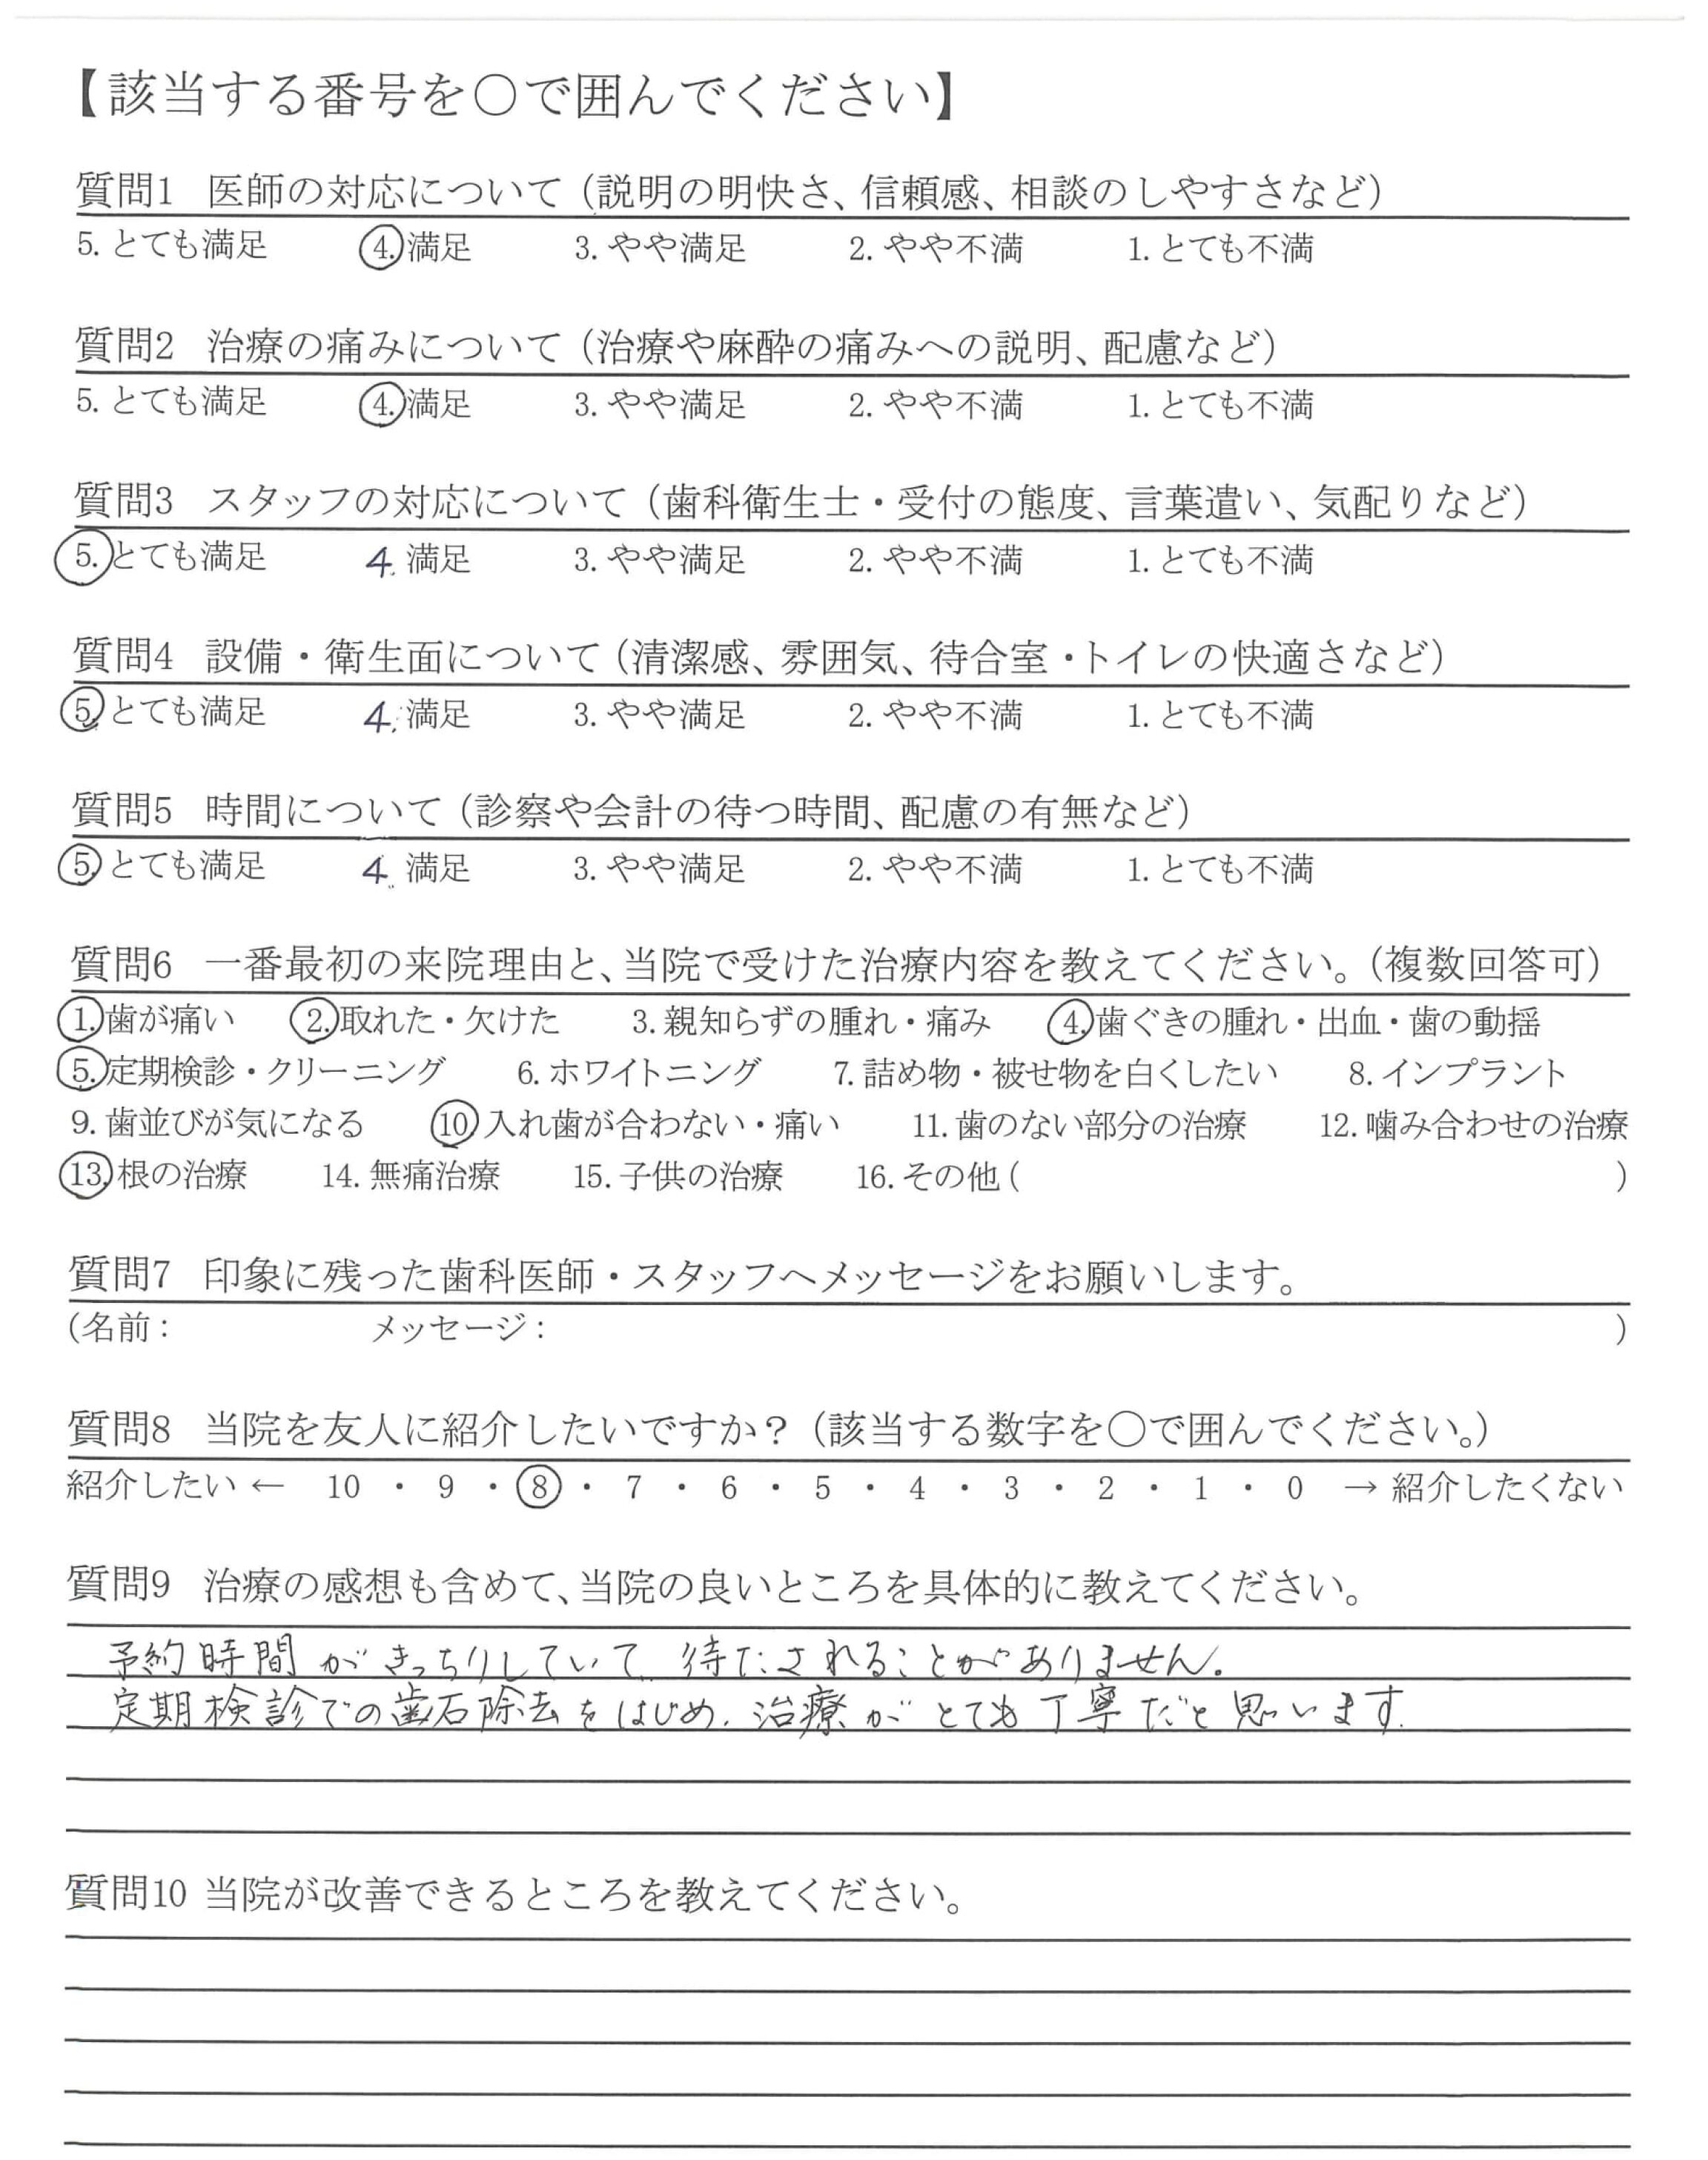 【該当する番号を〇で囲んでください】
質問1 医師の対応について（説明の明快さ、信頼感、相談のしやすさなど）
5. とても満足 4. 満足 3. やや満足 2. やや不満 1. とても不満
質問2 治療の痛みについて（治療や麻酔の痛みへの説明、配慮など）
5. とても満足 4. 満足 3. やや満足 2. やや不満 1. とても不満
質問3 スタッフの対応について（歯科衛生士・受付の態度、言葉遣い、気配りなど）
5. とても満足 4. 満足 3. やや満足 2. やや不満 1. とても不満
質問4 設備・衛生面について（清潔感、雰囲気、待合室・トイレの快適さなど）
5. とても満足 4. 満足 3. やや満足 2. やや不満 1. とても不満
質問5 時間について（診察や会計の待つ時間、配慮の有無など）
5. とても満足 4. 満足 3. やや満足 2. やや不満 1. とても不満
質問6 一番最初の来院理由と、当院で受けた治療内容を教えてください。（複数回答可）
1. 歯が痛い 2. 取れた・欠けた 3. 親知らずの腫れ・痛み 4. 歯ぐきの腫れ・出血・歯の動揺
5. 定期検診・クリーニング 6. ホワイトニング 7. 詰め物・被せ物を白くしたい 8. インプラント
9. 歯並びが気になる 10. 入れ歯が合わない・痛い 11. 歯のない部分の治療 12. 噛み合わせの治療
13. 根の治療 14. 無痛治療 15. 子供の治療 16. その他（ ）
質問7 印象に残った歯科医師・スタッフへメッセージをお願いします。
（名前： メッセージ： ）
質問8 当院を友人に紹介したいですか？（該当する数字を〇で囲んでください。）
紹介したい ← 10 ・ 9 ・ 8 ・ 7 ・ 6 ・ 5 ・ 4 ・ 3 ・ 2 ・ 1 ・ 0 → 紹介したくない
質問9 治療の感想も含めて、当院の良いところを具体的に教えてください。
予約時間がきっちりしていて、待たされることがありません。
定期検診での歯石除去をはじめ、治療がとても丁寧だと思います。
質問10 当院が改善できるところを教えてください。